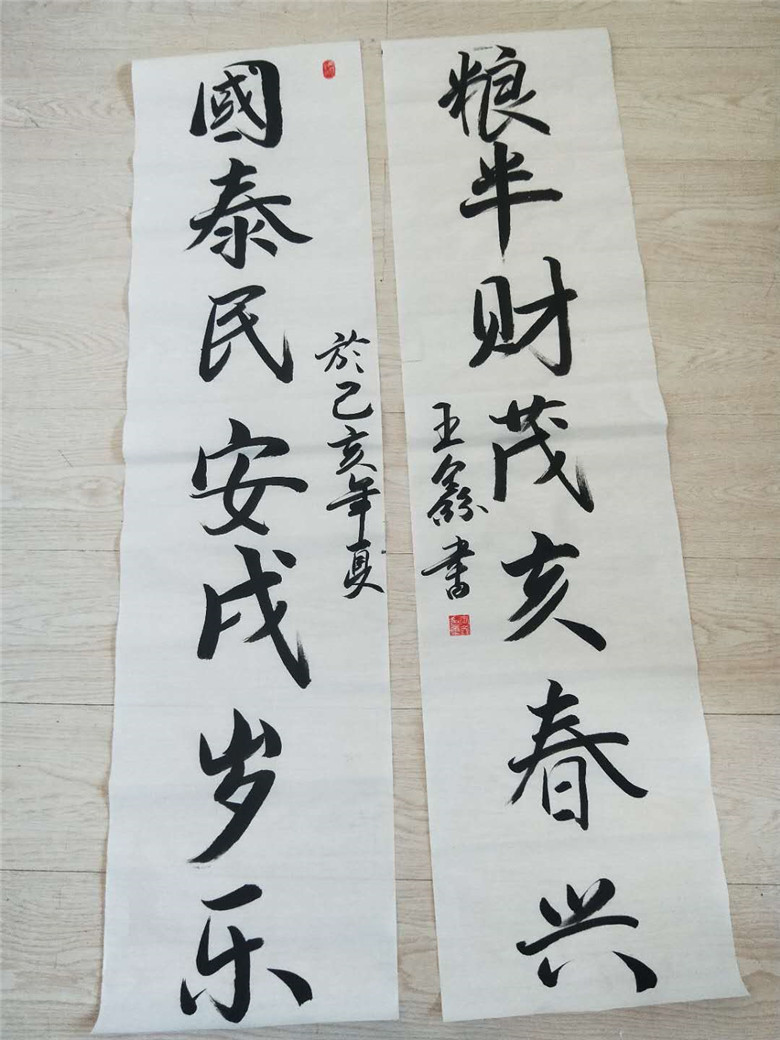 國泰民安戌岁乐
於己亥年夏
粮半财茂亥春兴
王鑫書